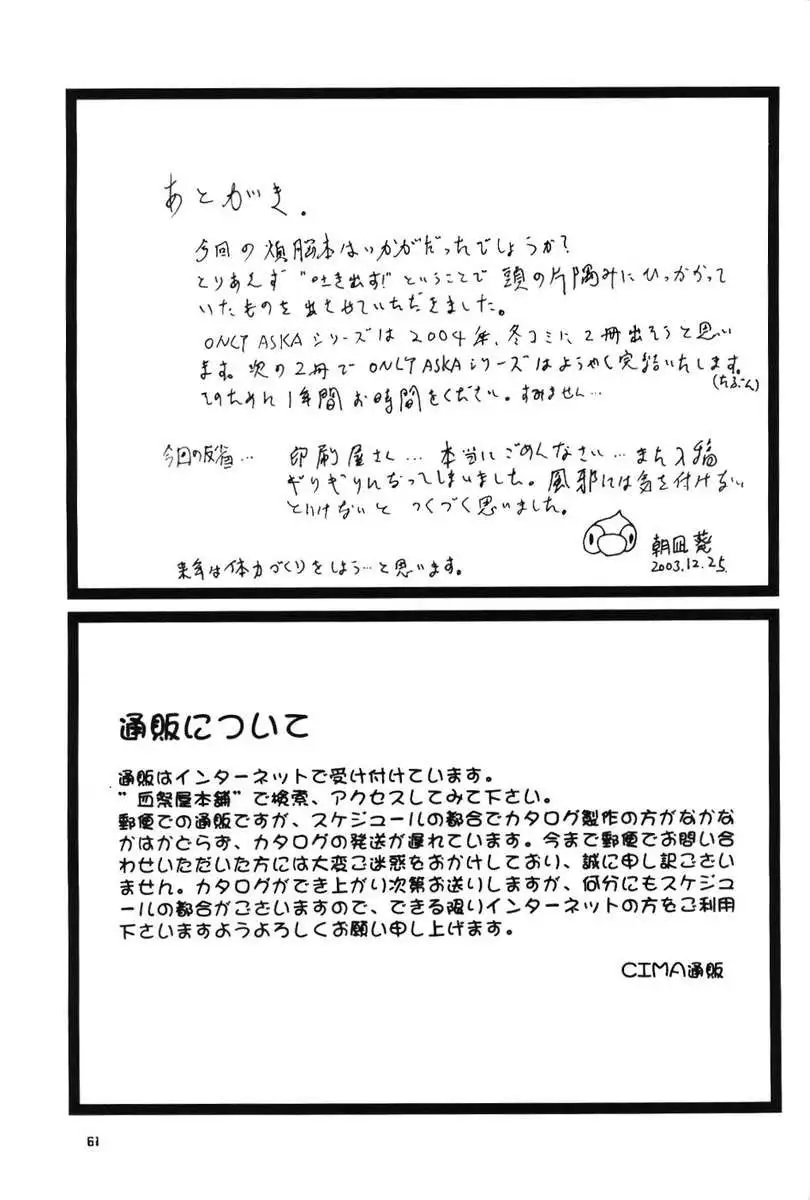 あとがき.
今回の煩脳本はいかがだったでしょうか?
とりあえず"吐き出す!"ということで 頭の片隅みにひっかかって
いたものを出させていただきました。
ONLY ASKAシリーズは2004年、冬コミに2冊出そうと思い
ます。次の2冊でONLY ASKAシリーズはようやく完結いたします。
(たぶん)
そのために1年間お時間をください。すみません…
今回の反省… 印刷屋さん… 本当にごめんなさい… また入稿
ギリギリになってしまいました。風邪には気を付けない
といけないと つくづく思いました。
朝凪葵
来年は体力づくりをしよう…と思います。
2003.12.25.
通販について
通販はインターネットで受け付けています。
"血祭屋本舗"で検索、アクセスしてみて下さい。
郵便での通販ですが、スケジュールの都合でカタログ製作の方がなかな
かはかどらず、カタログの発送が遅れています。今まで郵便でお問い合
わせいただいた方には大変ご迷惑をおかけしており、誠に申し訳ござい
ません。カタログができ上がり次第お送りしますが、何分にもスケジュ
ールの都合がございますので、できる限りインターネットの方をご利用
下さいますようよろしくお願い申し上げます。
CIMA通販
61